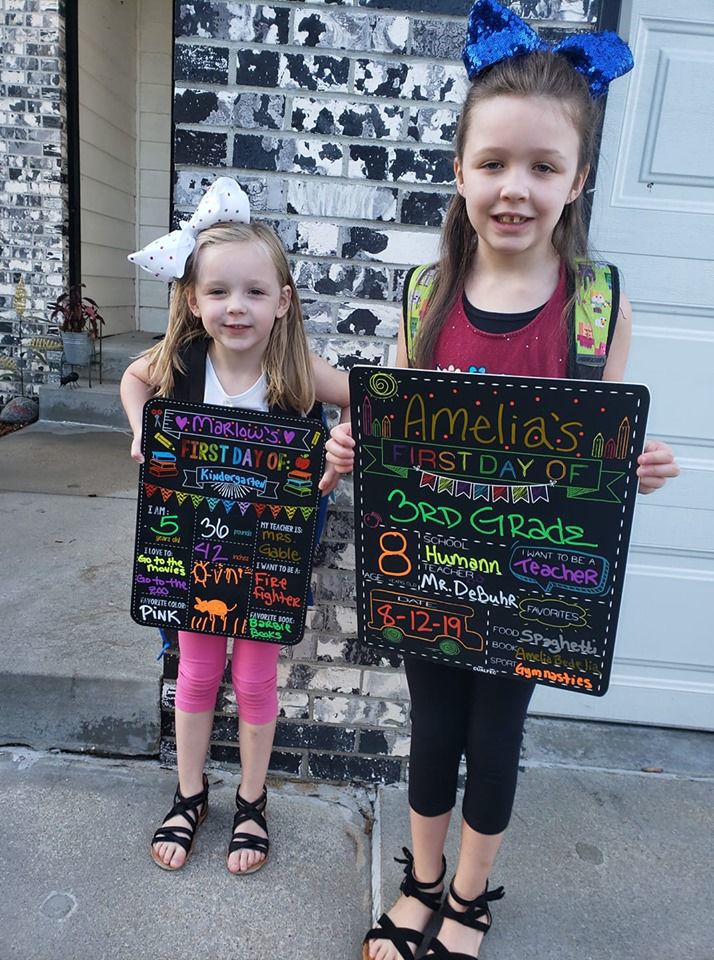 Marlow's
FIRST DAY OF:
Kindergarten
I AM:
5
years old
36 pounds
42 inches
MY TEACHER IS:
Mrs.
Gable
I LOVE TO:
Go to the
movies
Go to the
zoo
I WANT TO BE A:
Fire
Fighter
FAVORITE COLOR:
Pink
FAVORITE BOOK:
Barbie
Books
Amelia's
FIRST DAY OF
3RD Grade
8
AGE YEARS OLD
SCHOOL
Humann
TEACHER
Mr. DeBuhr
I WANT TO BE A
Teacher
DATE
8-12-19
FAVORITES
FOOD Spaghetti
BOOK Amelia Bedelia
SPORT Gymnastics